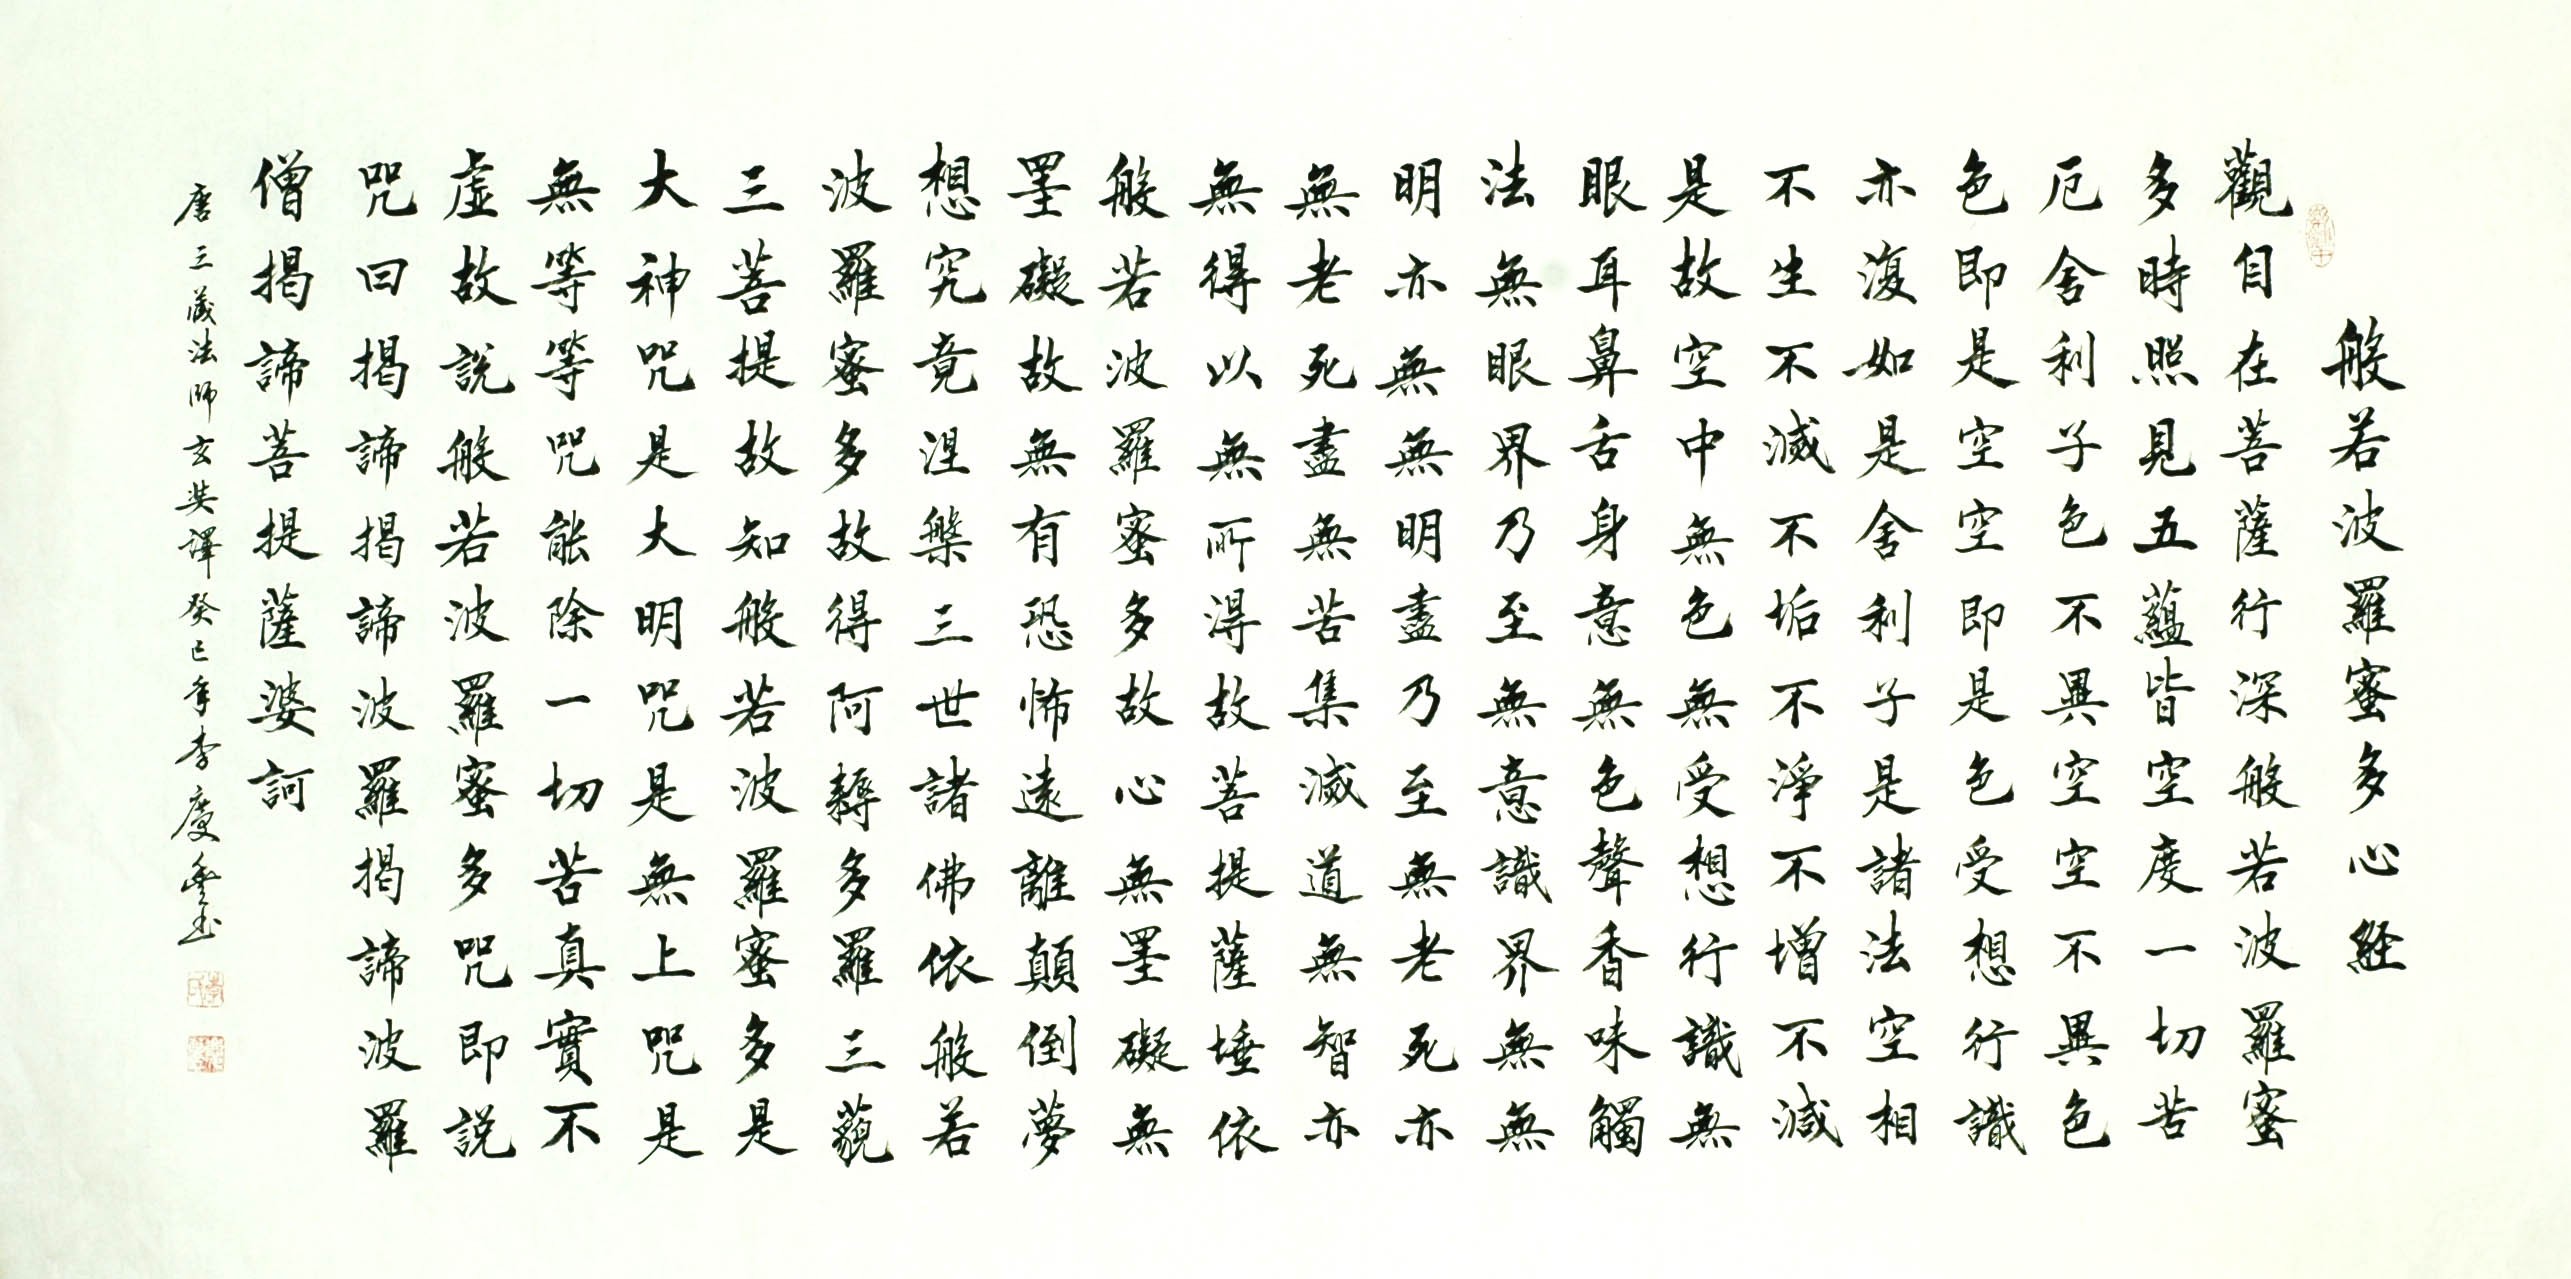 般若波羅蜜多心経
觀自在菩薩行深般若波羅蜜
多時照見五蘊皆空度一切苦
厄舍利子色不異空空不異色
色即是空空即是色受想行識
亦復如是舍利子是諸法空相
不生不滅不垢不淨不增不減
是故空中無色無受想行識無
眼耳鼻舌身意無色聲香味觸
法無眼界乃至無意識界無無
明亦無無明盡乃至無老死亦
無老死盡無苦集滅道無智亦
無得以無所得故菩提薩埵依
般若波羅蜜多故心無罣礙無
罣礙故無有恐怖遠離顛倒夢
想究竟涅槃三世諸佛依般若
波羅蜜多故得阿耨多羅三藐
三菩提故知般若波羅蜜多是
大神咒是大明咒是無上咒是
無等等咒能除一切苦真實不
虛故說般若波羅蜜多咒即說
咒曰揭諦揭諦波羅揭諦波羅
僧揭諦菩提薩婆訶
唐三藏法師玄奘譯癸巳年李慶